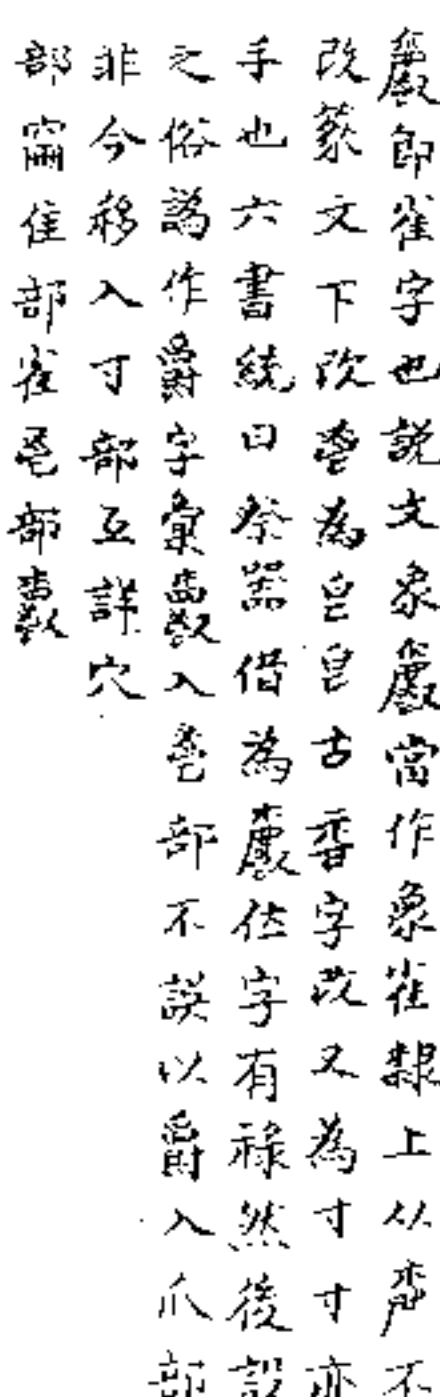 即雀字也說文象當作象雀隸上从不
改篆文下改鬯為皀皀古香字改又為寸寸亦
手也六書統曰祭器借為俗字有祿然後設
之俗譌作爵字彙入鬯部不誤以爵入爪部
非今移入寸部互詳穴
部窬隹部雀鬯部